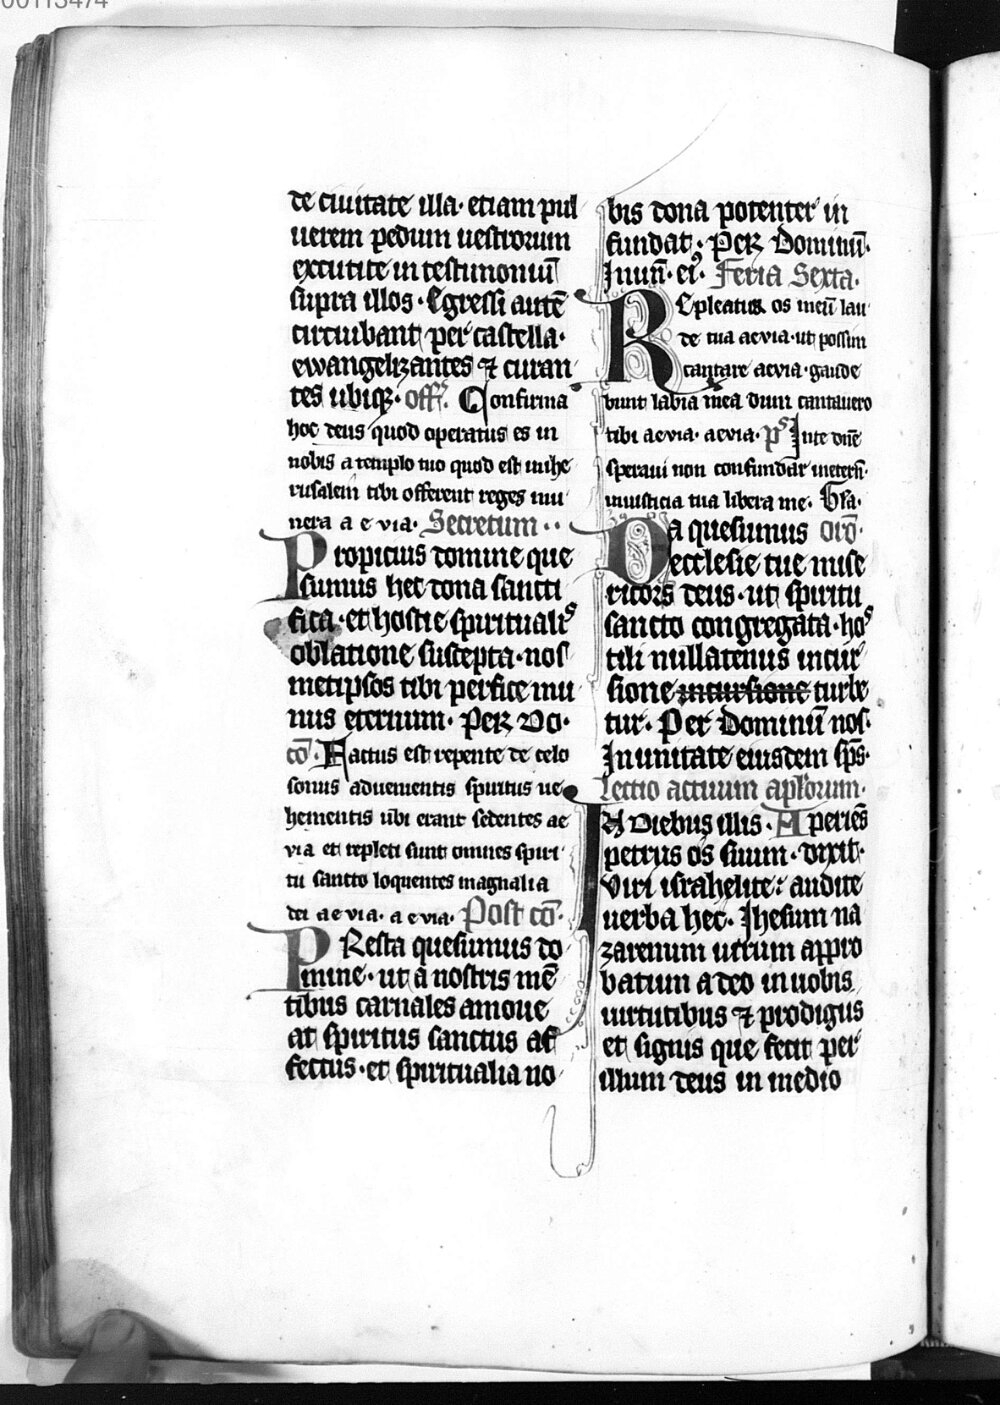 00113474
de ciuitate illa· etiam pul
uerem pedum uestrorum
excutite in testimoniū
supra illos· Egressi autē
circuibant per castella·
ewangelizantes ⁊ curan
tes ubiqꝫ· off̄· Confirma
hoc deus quod operatus es in
nobis a templo tuo quod est in ihe
rusalem tibi offerent reges mu
nera a e via· Secretum··
Propicius domine que
sumus hec dona sancti
fica· et hostie spirituali⁹
oblatione suscepta· nos
metipsos tibi perfice mu
nus eternum· Per Do·
cō· Factus est repente de celo
sonus aduenientis spiritus ue
hementis ubi erant sedentes ae
via et repleti sunt omnes spiri
tu sancto loquentes magnalia
dei ae via· a e via· Post cō·
PResta quesumus do
mine· ut a nostris mē
tibus carnales amoue
at spiritus sanctus af
fectus· et spiritualia no
bis dona potenter in
fundat· Per Dominū·
In un̄· ei⁹· Feria Sexta·
REpleatur os meū lau
de tua aevia· ut possim
cantare aevia· gaude
bunt labia mea dum cantauero
tibi aevia· aevia· ps In te dn̄e
speraui non confundar in etern̄·
in iusticia tua libera me· Gl̄a·
Da quesumus orō·
ecclesie tue mise
ricors deus· ut spiritu
sancto congregata· ho⁹
tili nullatenus incur
sione incursione turbe
tur· Per Dominū nos·
In unitate eiusdem sp̄s·
Lectio actuum apl̄orum·
IN Diebus illis· Aperiēs
petrus os suum· dixit·
Viri israhelite: audite
uerba hec· Jhesum na
zarenum uirum appro
batum a deo in uobis
uirtutibus ⁊ prodigiis
et signis que fecit per
illum deus in medio